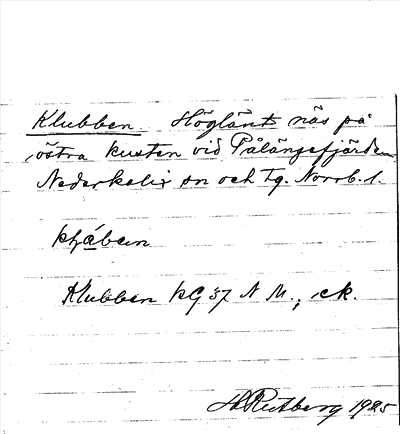 Klubben Höglänt näs på
östra kusten vid Pålängefjärden
Nederkalix sn och tg. Norrb. l.
Klubben KG 37 N M., ek.
H Rutberg 1925